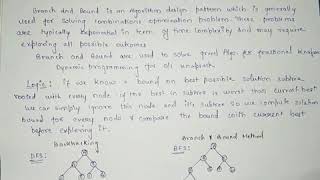 Branch and Bound is an Algorithm design pattern which is generally
used for solving combinations optimization problem. These problems
are typically exponential in term of time complexity And may require
exploring all possible outcomes
Branch and Bound are used to solve greedy Algo. for fractional knapsack
Dynamic programming for 0/1 knapsack.
Logic: if we know a bound on best possible solution subtree
rooted with every node if the best in subtree is worst than current best
we can simply ignore this node and it's subtree so we compute solution
bound for every node & compare the bound with current best
before exploring it.
Backtracking
Branch & Bound Method
DFS:
BFS: